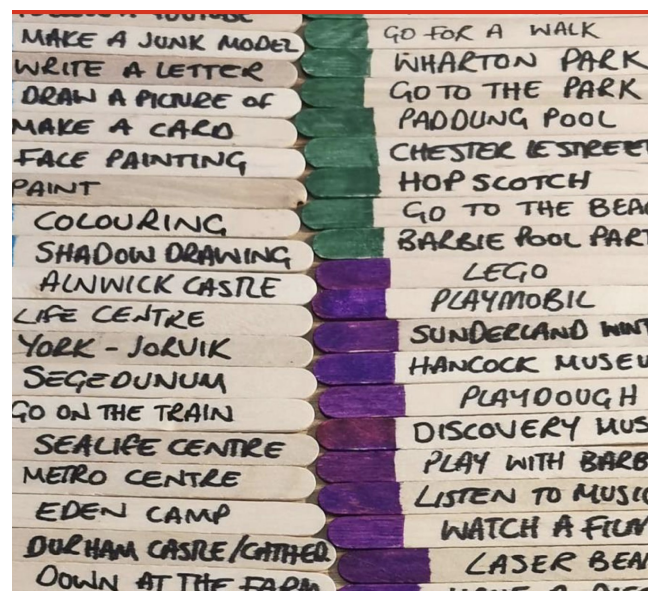 MAKE A JUNK MODEL
WRITE A LETTER
DRAW A PICTURE OF
MAKE A CARD
FACE PAINTING
PAINT
COLOURING
SHADOW DRAWING
ALNWICK CASTLE
LIFE CENTRE
YORK - JORVIK
SEGEDUNUM
GO ON THE TRAIN
SEALIFE CENTRE
METRO CENTRE
EDEN CAMP
DURHAM CASTLE/CATHED
DOWN AT THE FARM
GO FOR A WALK
WHARTON PARK
GO TO THE PARK
PADDLING POOL
CHESTER LE STREET
HOP SCOTCH
GO TO THE BEA
BARBIE POOL PART
LEGO
PLAYMOBIL
SUNDERLAND WINT
HANCOCK MUSEU
PLAYDOUGH
DISCOVERY MUS
PLAY WITH BARB
LISTEN TO MUSIC
WATCH A FILM
LASER BEA